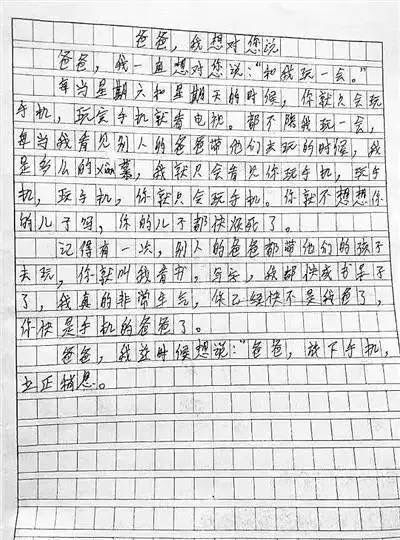 爸爸，我想对您说
爸爸，我一直想对您说：“和我玩一会。”
每当星期六和星期天的时候，你就只会玩
手机，玩完手机就看电视。都不陪我玩一会，
每当我看见别人的爸爸带他们去玩的时候，我
是多么的xian慕，我就只会看见你玩手机，玩手
机，玩手机，你就只会玩手机。你就不想想你
的儿子吗，你的儿子都快疯死了。
记得有一次，别人的爸爸都带他们的孩子
去玩，你就叫我看书，写字，我都快成书呆子
了，我真的非常生气，你已经快不是我爸了，
你快是手机的爸爸了。
爸爸，我这时候想说：“爸爸，放下手机，
立正稍息。